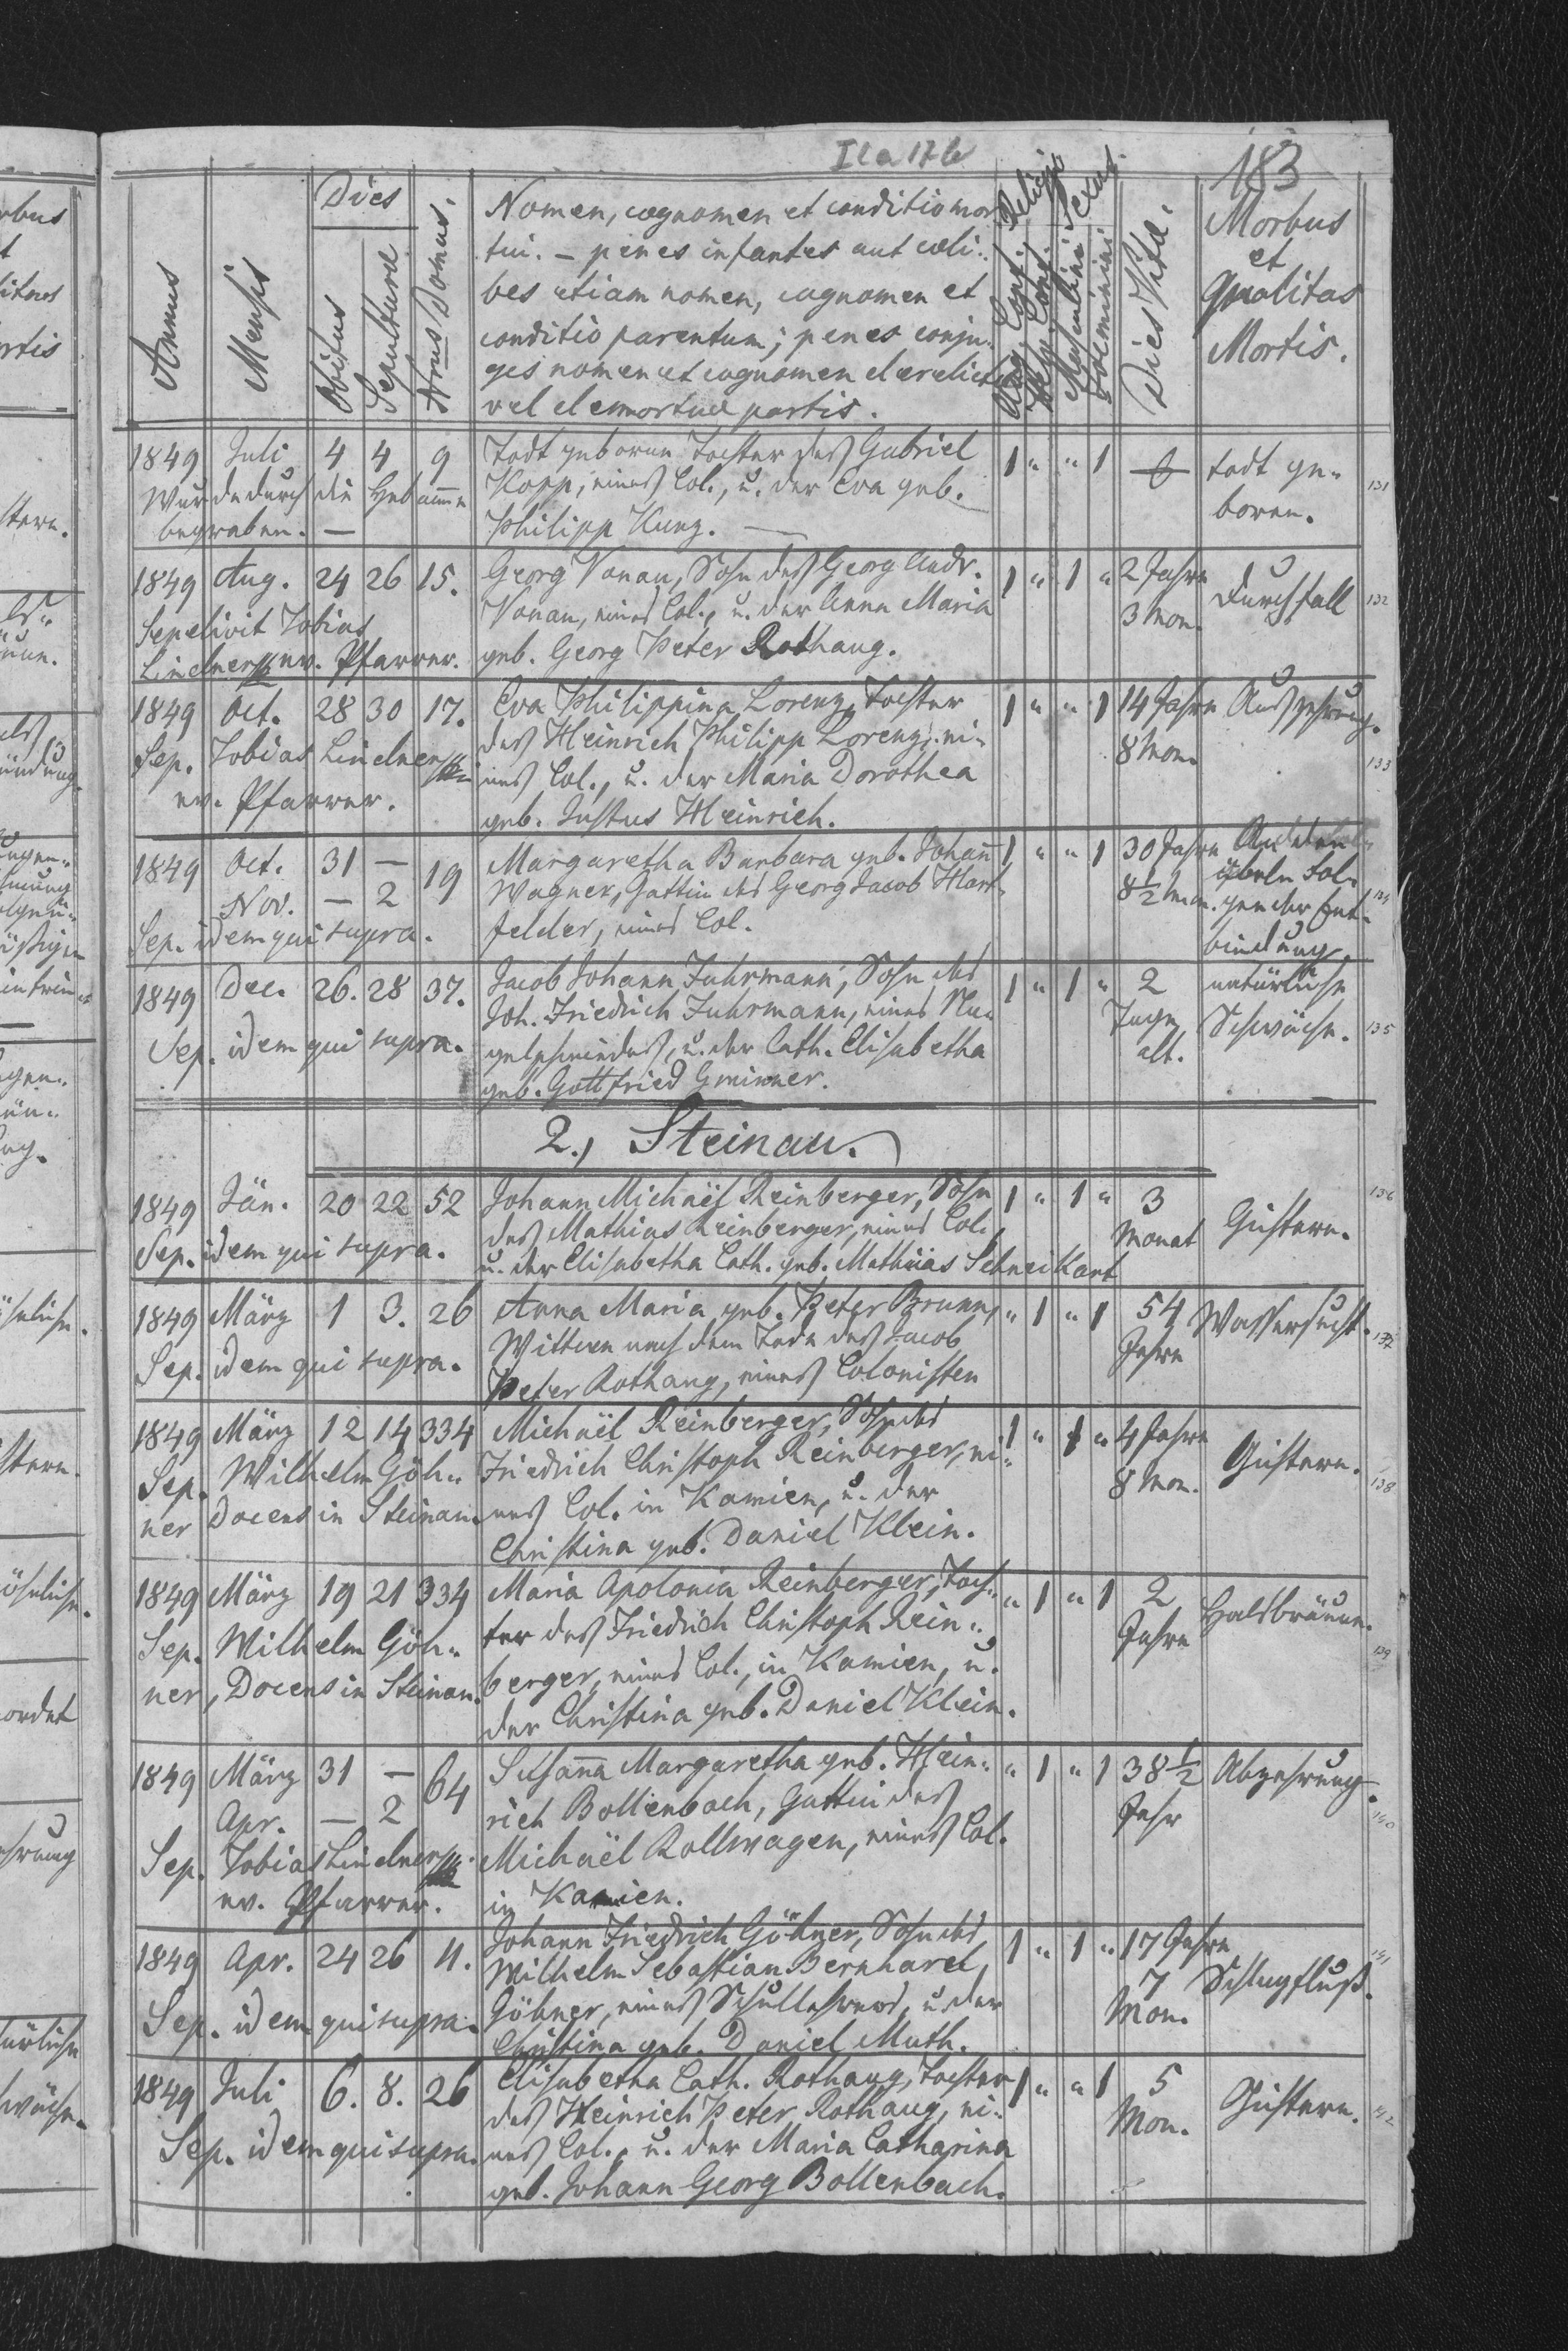 II a 176
183
Annus
Mensis
Dies
Obitus
Sepulturae
Nrus Domus.
Nomen, cognomen et conditio mor
tui. – penes infantes aut coeli-
bes etiam nomen, cognomen et
conditio parentum; penes conju-
ges nomen et cognomen derelictae
vel demortuae partis.
Religio
Aug. Conf.
Helv. Conf.
Sexus
Masculini
Foeminini
Dies Vitae.
Morbus
et
Qualitas
Mortis.
1849 Juli 4 4 9 Todt geborne Tochter deß Gabriel 1 " " 1 0 todt ge-
Wurde durch die Hebamme Kopp, eines Col., u. der Eva geb. boren. 131
begraben. — Philipp Kunz. —
1849 Aug. 24 26 15. Georg Vonau, Sohn deß Georg Andr. 1 " 1 " 2 Jahre Durchfall
Sepelivit Tobias Vonau, eines Col., u. der Anna Maria 3 Mon. 132
Lindner ev. Pfarrer. geb. Georg Peter Rothaug.
1849 Oct. 28 30 17. Eva Philippina Lorenz, Tochter 1 " " 1 14 Jahre Auszehrung.
Sep. Tobias Lindner deß Heinrich Philipp Lorenz, ei- 8 Mon. 133
ev. Pfarrer. nes Col., u. der Maria Dorothea
geb. Justus Heinrich.
1849 Oct. 31 — 19 Margaretha Barbara geb. Johann 1 " " 1 30 Jahre An den
Nov. — 2 Wagner, Gattin des Georg Jacob Hart- 8½ Mon. übeln Fol-
Sep. idem qui supra. felder, eines Col. gen der Ent- 134
bindung.
1849 Dec. 26. 28 37. Jacob Johann Fuhrmann, Sohn des 1 " 1 " 2 natürliche
Sep. idem qui supra. Joh. Friedrich Fuhrmann, eines Na- Tage Schwäche. 135
gelschmiedes, u. der Cath. Elisabetha alt.
geb. Gottfried
2., Steinau.
1849 Jän. 20 22 52 Johann Michaël Reinberger, Sohn 1 " 1 " 3 136
Sep. idem qui supra. deß Mathias Reinberger, eines Col. Monat Gichtern.
u. der Elisabetha Cath. geb. Mathias Schneikart
1849 März 1 3. 26 Anna Maria geb. Peter Brunn, " 1 " 1 54 Wassersucht. 137
Sep. idem qui supra. Wittwe nach dem Tode deß Jacob Jahre
Peter Rothaug, eines Colonisten
1849 März 12 14 334 Michaël Reinberger, Sohn des 1 " 1 " 4 Jahre Gichtern.
Sep. Wilhelm Göh- Friedrich Christoph Reinberger, ei- 8 Mon. 138
ner Docens in Steinau. nes Col. in Kamien, u. der
Christina geb. Daniel Klein.
1849 März 19 21 334 Maria Apolonia Reinberger, Toch- " 1 " 1 2 Halsbräune.
Sep. Wilhelm Göh- ter deß Friedrich Christoph Rein- Jahre 139
ner, Docens in Steinau. berger, eines Col., in Kamien, u.
der Christina geb. Daniel Klein.
1849 März 31 — 64 Susanna Margaretha geb. Hein- " 1 " 1 38½ Abzehrung.
Apr. — 2 rich Bollenbach, Gattin deß Jahr 140
Sep. Tobias Lindner Michaël Rollwagen, eines Col.
ev. Pfarrer. in Kamien.
1849 Apr. 24 26 11. Johann Friedrich Göhner, Sohn des 1 " 1 " 17 Jahre 141
Sep. idem qui supra. Wilhelm Sebastian Bernhard 7 Schlagfluß.
Göhner, eines Schullehrers, u. der Mon.
Christina geb. Daniel Muth.
1849 Juli 6. 8. 26 Elisabetha Cath. Rothaug, Tochter 1 " " 1 5 Gichtern. 142
Sep. idem qui supra. deß Heinrich Peter Rothaug, ei- Mon.
nes Col., u. der Maria Catharina
geb. Johann Georg Bollenbach.